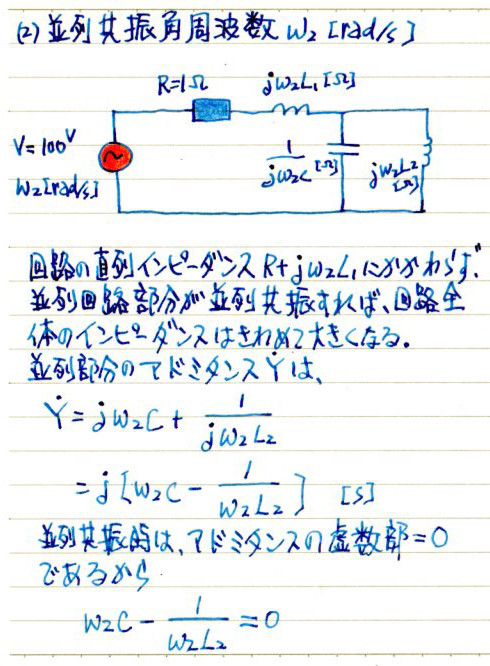 (2) 並列共振角周波数 ω₂ [rad/s]
R=1Ω
jω₂L₁[Ω]
V=100V
ω₂[rad/s]
1/jω₂C [Ω]
jω₂L₂
[Ω]
回路の直列インピーダンス R+jω₂L₁にかかわらず、
並列回路部分が並列共振すれば、回路全
体のインピーダンスはきわめて大きくなる。
並列部分のアドミタンスẎは、
Ẏ = jω₂C + 1/jω₂L₂
= j[ω₂C - 1/ω₂L₂] [S]
並列共振時は、アドミタンスの虚数部=0
であるから
ω₂C - 1/ω₂L₂ = 0